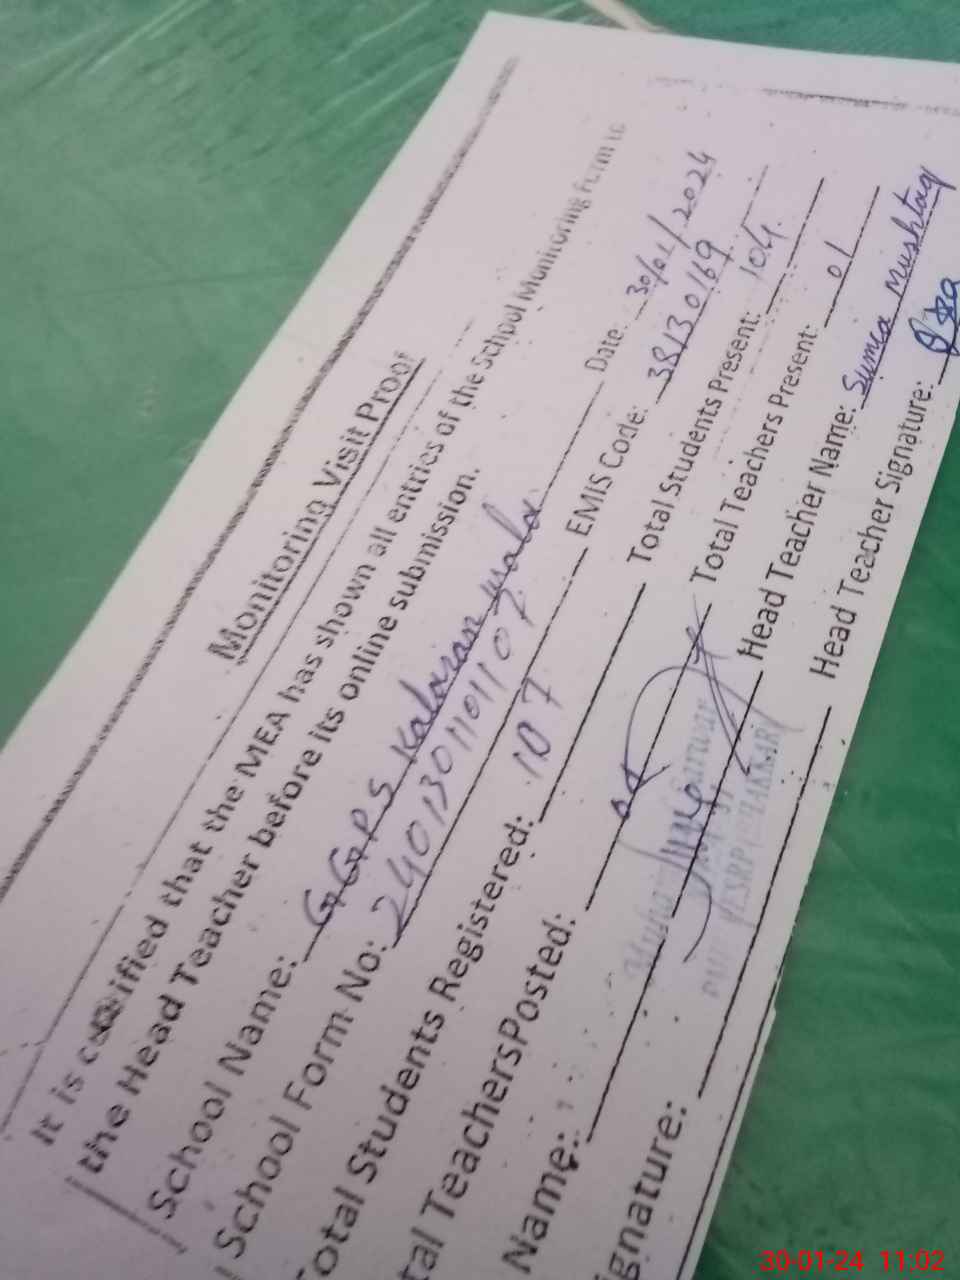 Monitoring Visit Proof
It is certified that the MEA has shown all entries of the School Monitoring Form to
the Head Teacher before its online submission.
School Name: GGPS Kalaran Date: 30/01/2024
School Form No: 2401301101107 EMIS Code: 38130169
Total Students Registered: 107 Total Students Present: 104
Total Teachers Posted: Total Teachers Present: 01
Name: Head Teacher Name: Sumea Mushtaq
Signature: Head Teacher Signature:
30-01-24 11:02